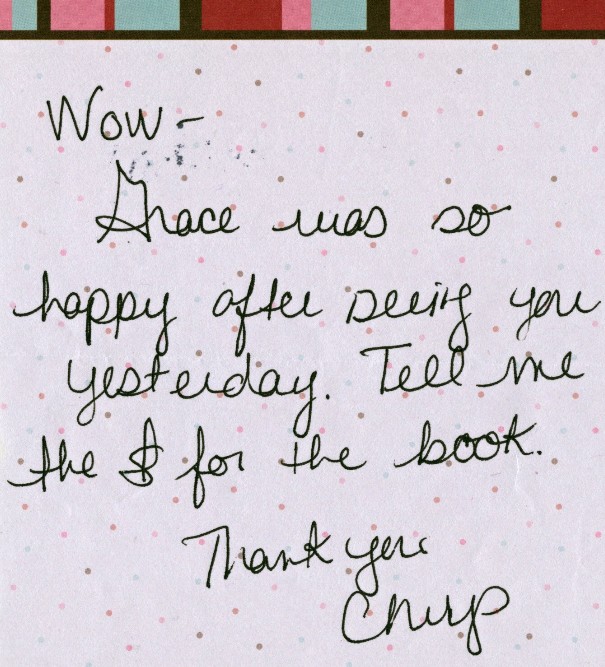 Wow -
Grace was so
happy after seeing you
yesterday. Tell me
the $ for the book.
Thank you
Chirp